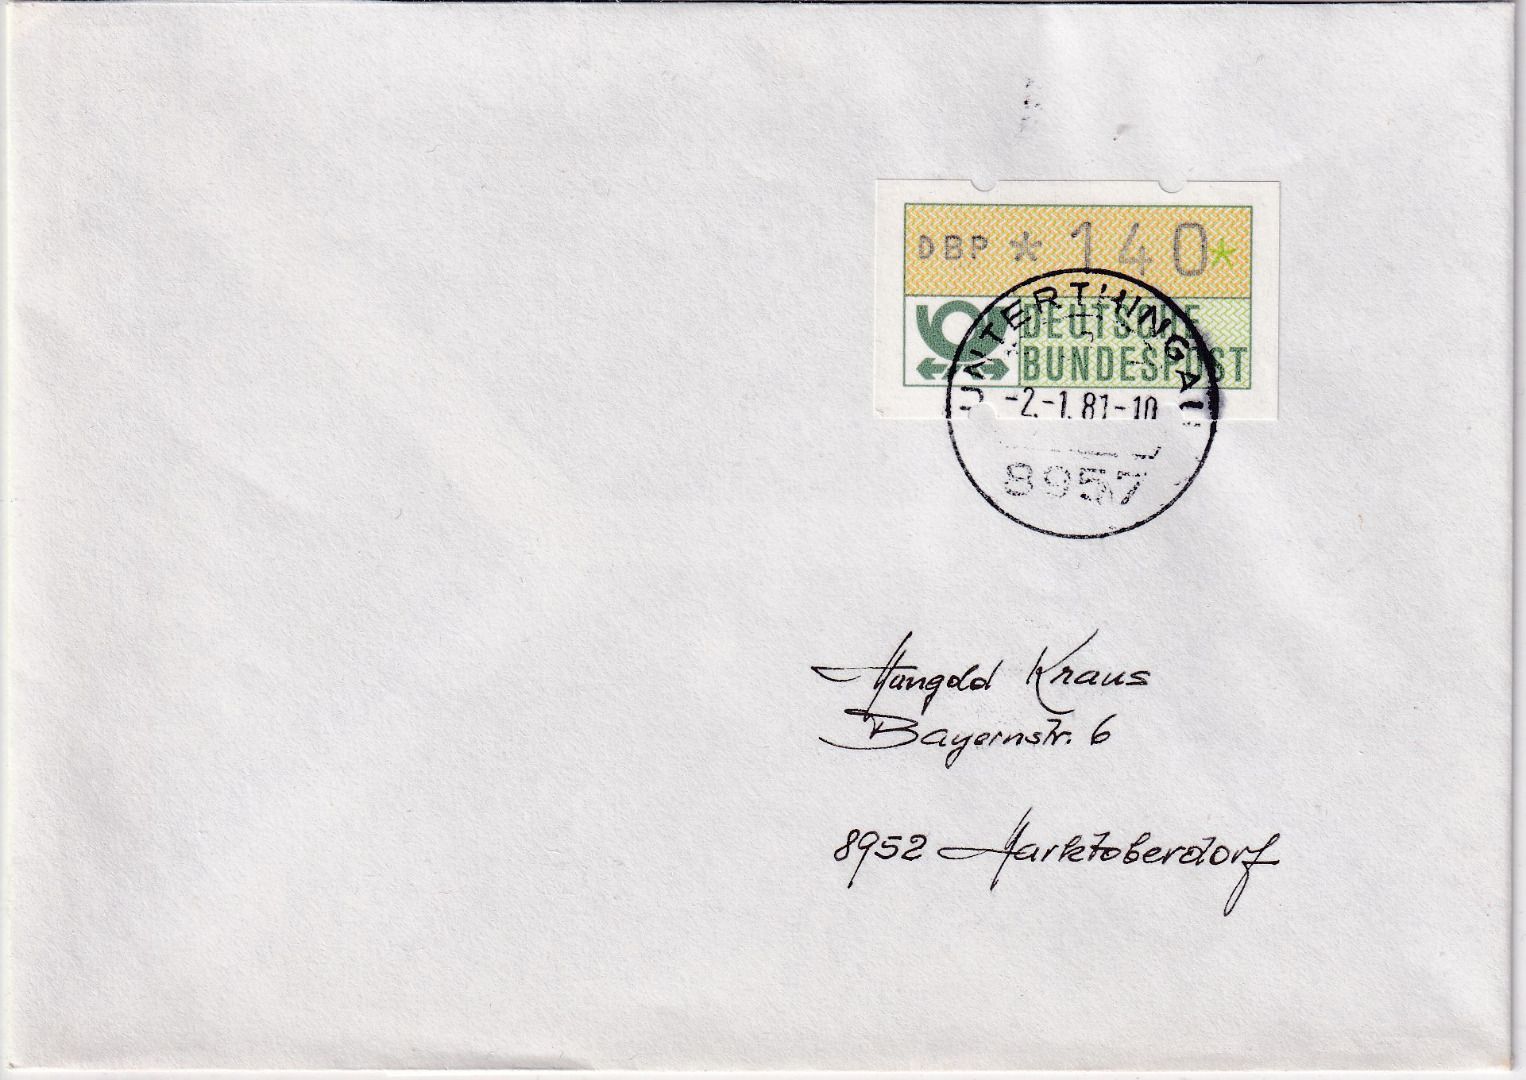 DBP * 140*
DEUTSCHE
BUNDESPOST
UNTERTHINGAU
-2.-1.81-10
8957
Mangold Kraus
Bayernstr. 6
8952 Marktoberdorf